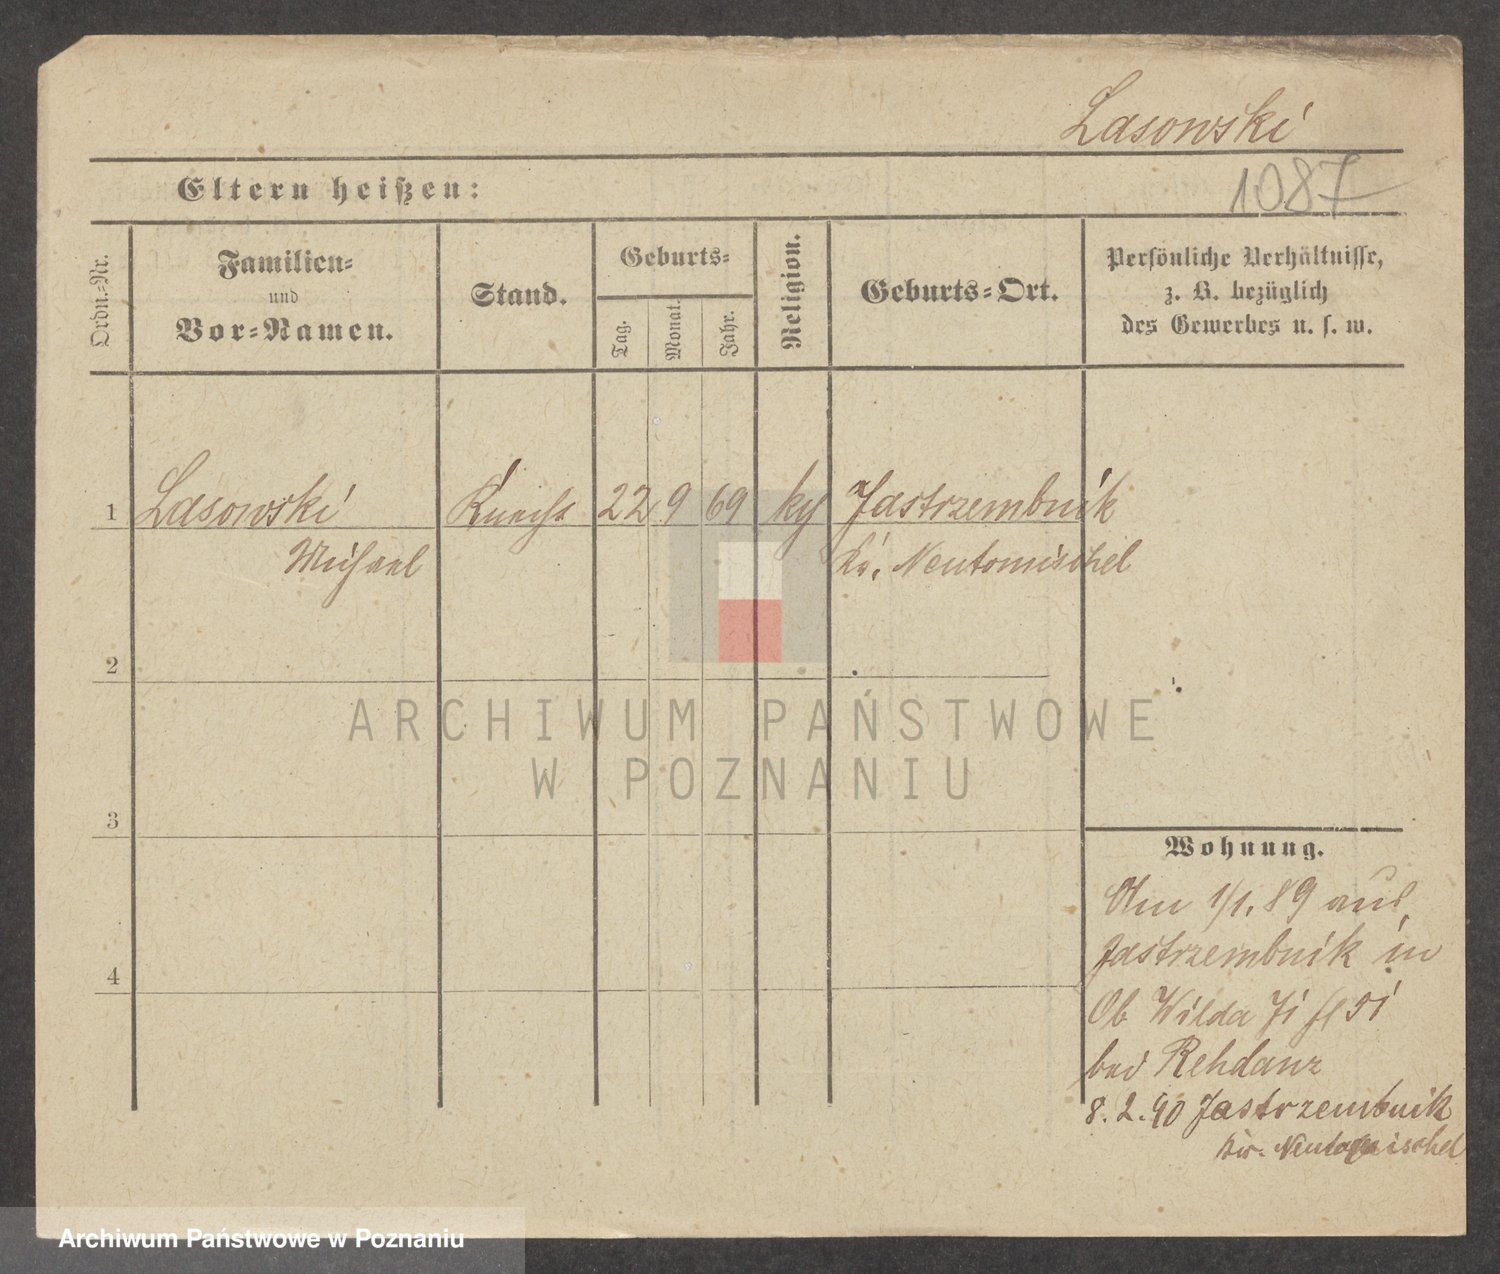 Lasowski
1087
Eltern heißen:
Ordn.-Nr.
Familien-
und
Vor-Namen.
Stand.
Geburts-
Tag.
Monat.
Jahr.
Religion.
Geburts-Ort.
Persönliche Verhältnisse,
z. B. bezüglich
des Gewerbes u. s. w.
1 Lasowski Knecht 22 9 69 Jastrzembnik
Michael Kr. Neutomischel
2
3
4
Wohnung.
Am 1/1. 89 aus
Jastrzembnik in
Ob Wilda 51
bei Rehdanz
8. 2. 90 Jastrzembnik
Kr. Neutomischel
ARCHIWUM PAŃSTWOWE
W POZNANIU
Archiwum Państwowe w Poznaniu